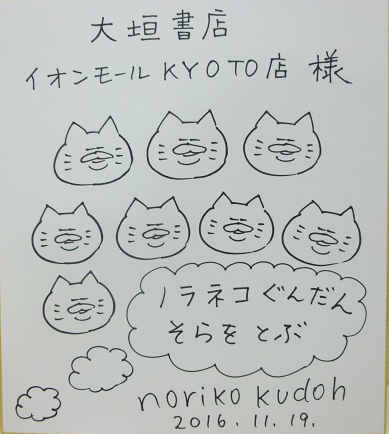 大垣書店
イオンモールKYOTO店 様
ノラネコぐんだん
そらをとぶ
noriko kudoh
2016.11.19.